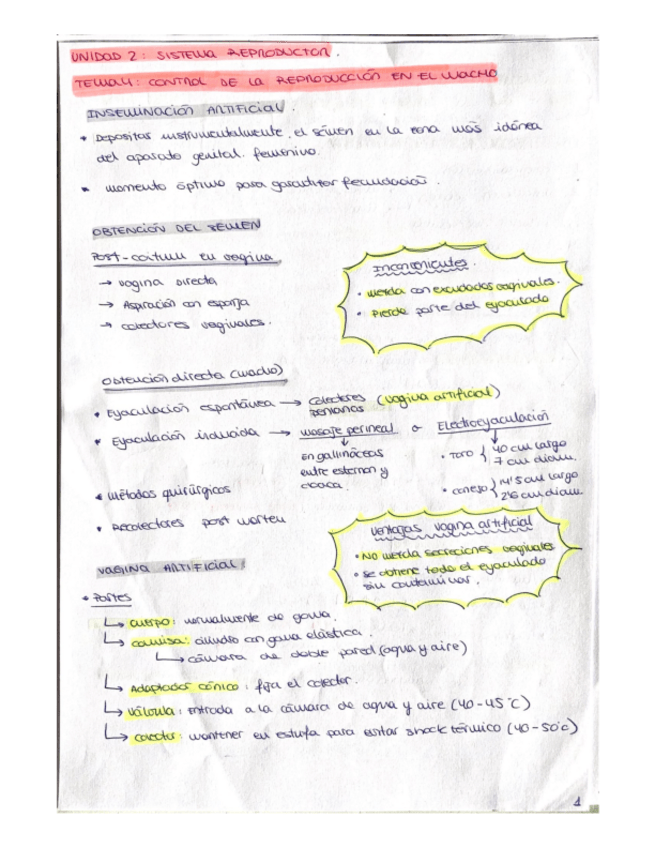 UNIDAD 2: SISTEMA REPRODUCTOR.
TEMA 4: CONTROL DE LA REPRODUCCIÓN EN EL MACHO
INSEMINACIÓN ARTIFICIAL.
• Depositar instrumentalmente, el sémen en la zona más idónea
del aparato genital femenino.
• momento óptimo para garantizar fecundación.
OBTENCIÓN DEL SEMEN
Post-coitum en vagina
→ vagina directa
→ Aspiración con esponja
→ colectores vaginales.
Inconvenientes.
• mezcla con exudados vaginales.
• Pierde parte del eyaculado
Obtención directa (macho)
• Eyaculación espontánea → colectores (vagina artificial)
penianos
• Eyaculación inducida → masaje perineal o Electroeyaculación
↓
En gallináceas
entre esternon y
cloaca.
• toro { 40 cm largo
7 cm diam.
• conejo } 14'5 cm largo
2'6 cm diam.
• Métodos quirúrgicos
• Recolectores post mortem
Ventajas vagina artificial
• No mezcla secreciones vaginales
• se obtiene todo el eyaculado
sin contaminar.
VAGINA ARTIFICIAL
• Partes
↳ cuerpo: normalmente de goma.
↳ camisa: cilindro con goma elástica.
↳ cámara de doble pared (agua y aire)
↳ Adaptador cónico: fija el colector.
↳ Válvula: Entrada a la cámara de agua y aire (40-45°C)
↳ colector: mantener en estufa para evitar shock térmico (40-50°C)
1